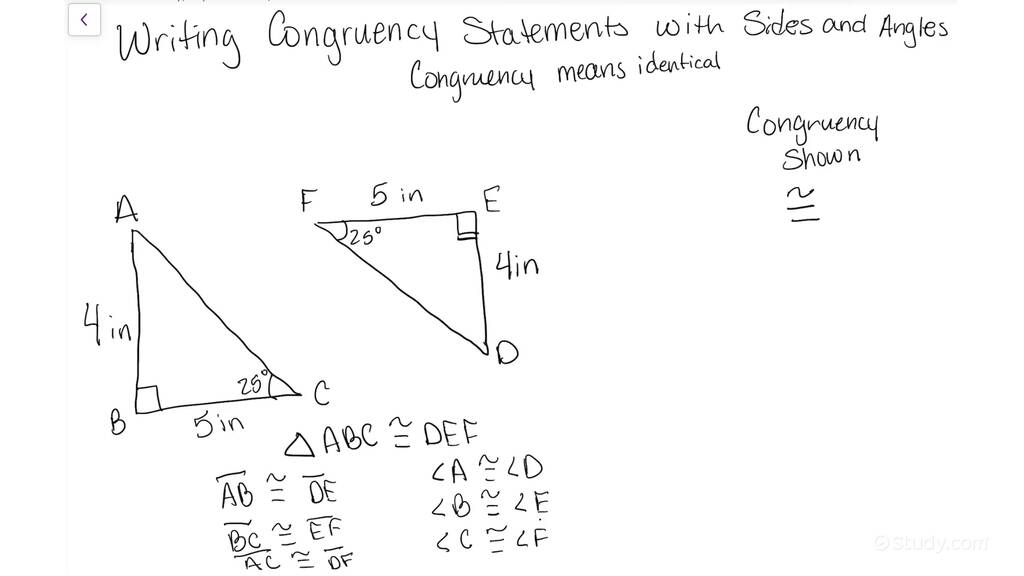 Writing Congruency Statements with Sides and Angles
Congruency means identical
Congruency
Shown
≅
A
F
5 in
E
25°
4in
4in
D
25°
C
B
5in
△ABC ≅ DEF
AB ≅ DE
∠A ≅ ∠D
BC ≅ EF
∠B ≅ ∠E
AC ≅ DF
∠C ≅ ∠F
Study.com